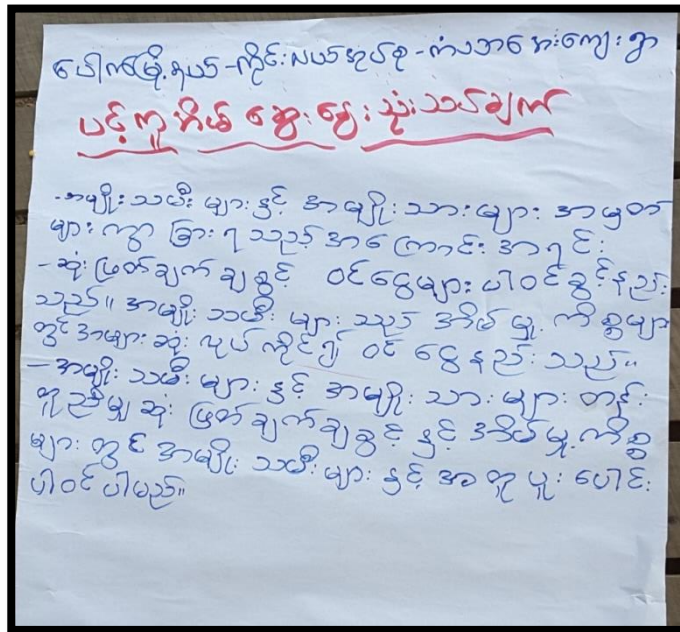 ပေါက်မြို့နယ်-ကိုင်းလယ်အုပ်စု-ကံသာအေးကျေးရွာ
ပင့်ကူအိမ် ဆွေးနွေးသုံးသပ်ချက်
-အမျိုးသမီး များ နှင့် အမျိုးသားများ အမှတ်
များ ကွာ ခြား ရ သည့် အကြောင်း အရင်း
-ဆုံးဖြတ်ချက် ချခွင့် ဝင်ငွေများ ပါဝင်ခွင့်နည်း
သည်။ အမျိုး သမီး များ သည် အိမ်မှု ကိစ္စများ
တွင် အများ ဆုံး လုပ် ကိုင်၍ ဝင် ငွေ နည်း သည်။
-အမျိုး သမီး များ နှင့် အမျိုး သား များ တန်း
တူညီမျှ ဆုံး ဖြတ်ချက်ချခွင့် နှင့် အိမ်မှု ကိစ္စ
များ တွင် အမျိုး သမီး များ နှင့် အတူ ပူး ပေါင်း
ပါဝင်ပါမည်။